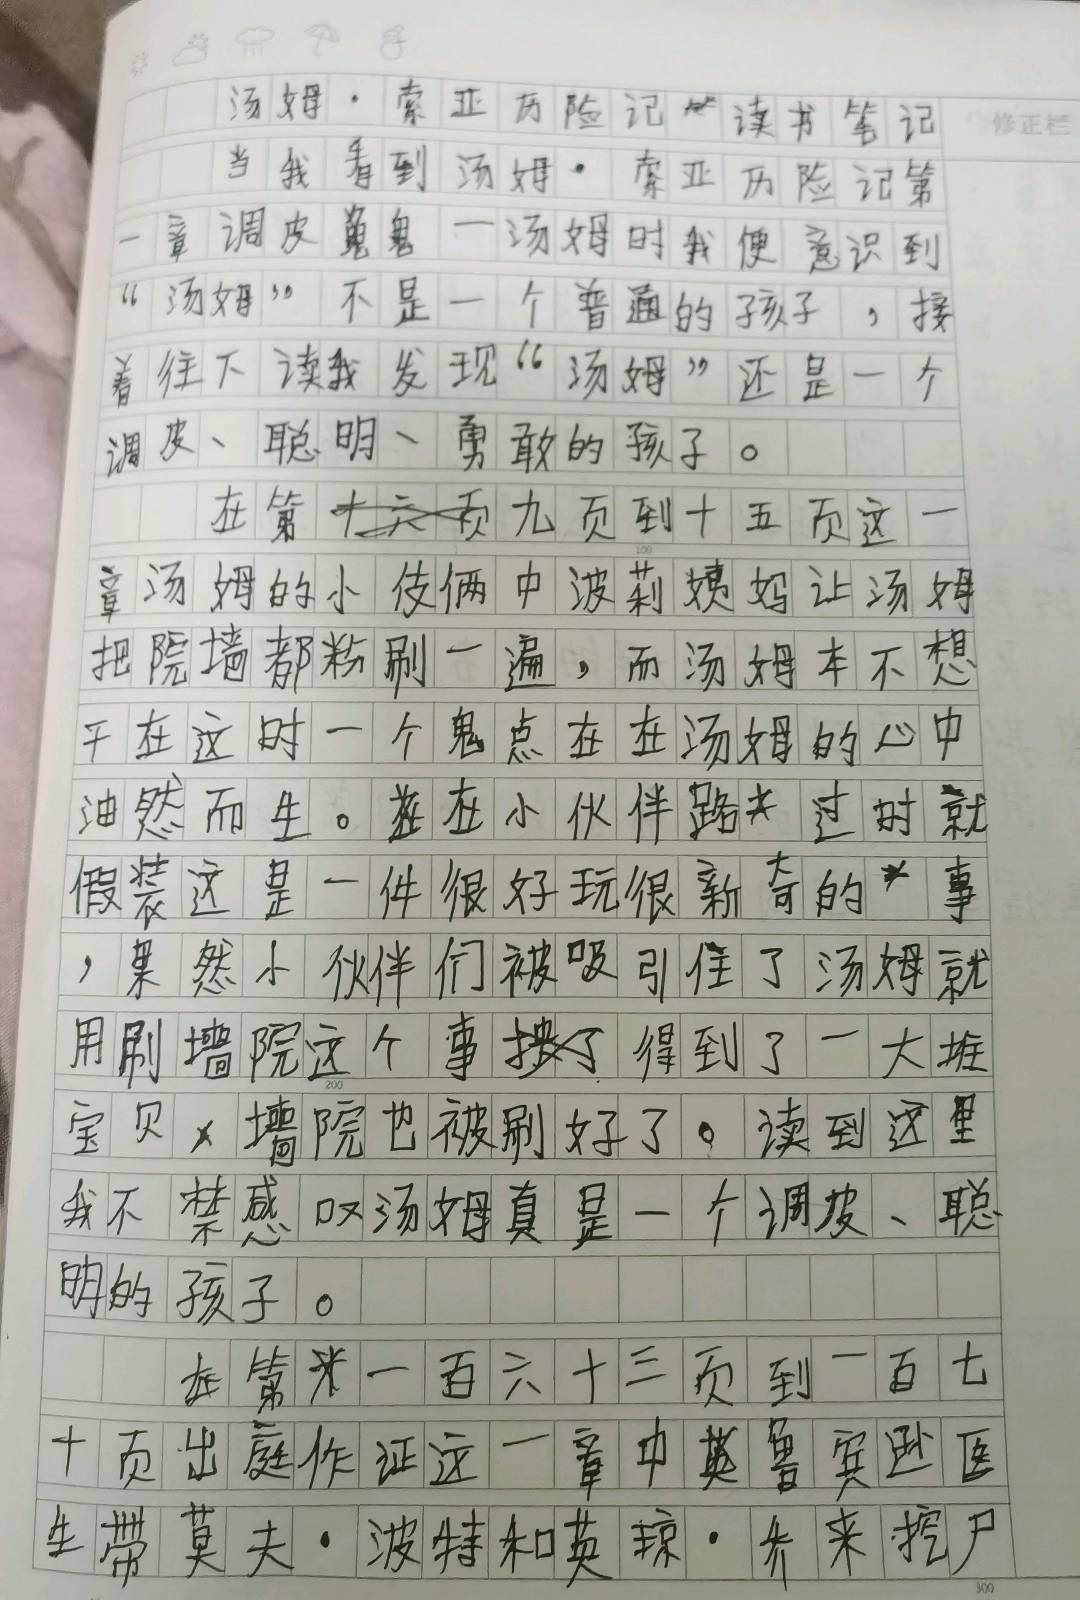 修正栏
汤姆·索亚历险记 读书笔记
当我看到汤姆·索亚历险记第
一章调皮鬼一汤姆时我便意识到
“汤姆”不是一个普通的孩子，接
着往下读我发现“汤姆”还是一个
调皮、聪明、勇敢的孩子。
在第九页到十五页这一
100
章汤姆的小伎俩中波莉姨妈让汤姆
把院墙都粉刷一遍，而汤姆本不想
干在这时一个鬼点在在汤姆的心中
油然而生。在小伙伴路过时就
假装这是一件很好玩很新奇的事
，果然小伙伴们被吸引住了汤姆就
用刷墙院这个事得到了一大堆
200
宝贝墙院也被刷好了。读到这里
我不禁感叹汤姆真是一个调皮、聪
明的孩子。
在第一百六十三页到一百七
十页出庭作证这一章中鲁宾逊医
生带莫夫·波特和英琼·乔来挖尸
300